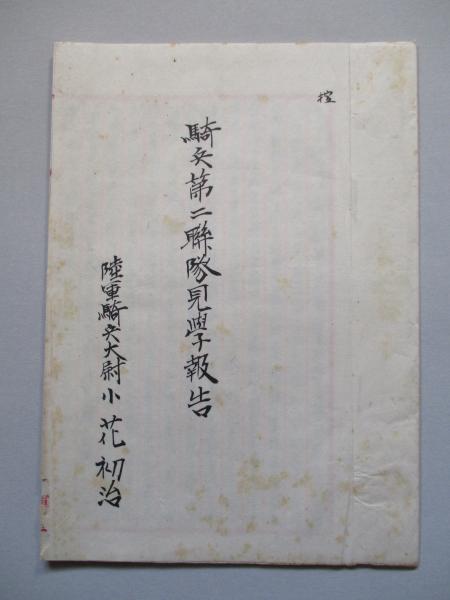 控
騎兵第二聯隊見學報告
陸軍騎兵大尉小花初治